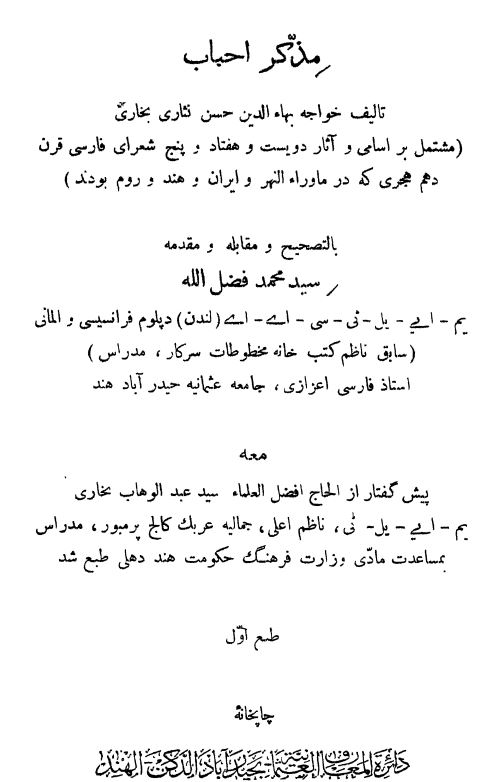 مذکّر احباب
تالیف خواجه بهاء الدین حسن نثاری بخاریؒ
(مشتمل بر اسامی و آثار دویست و هفتاد و پنج شعرای فارسی قرن
دهم هجری که در ماوراء النهر و ایران و هند و روم بودند)
بالتصحیح و مقابله و مقدمه
سید محمد فضل الله
یم - ایے - یل - ٹی - سی - اے - اے (لندن) دپلوم فرانسیسی و المانی
(سابق ناظم کتب خانه مخطوطات سرکار، مدراس)
استاذ فارسی اعزازی، جامعه عثمانیه حیدر آباد هند
معه
پیش گفتار از الحاج افضل العلماء سید عبد الوهاب بخاری
یم - ایے - یل - ٹی، ناظم اعلی، جمالیه عربك کالج پرمبور، مدراس
بمساعدت مادّی وزارت فرهنگ حکومت هند دهلی طبع شد
طبع اوّل
چاپخانهٔ
دائرة المعارف العثمانية بحيدر آباد الدكن الهند